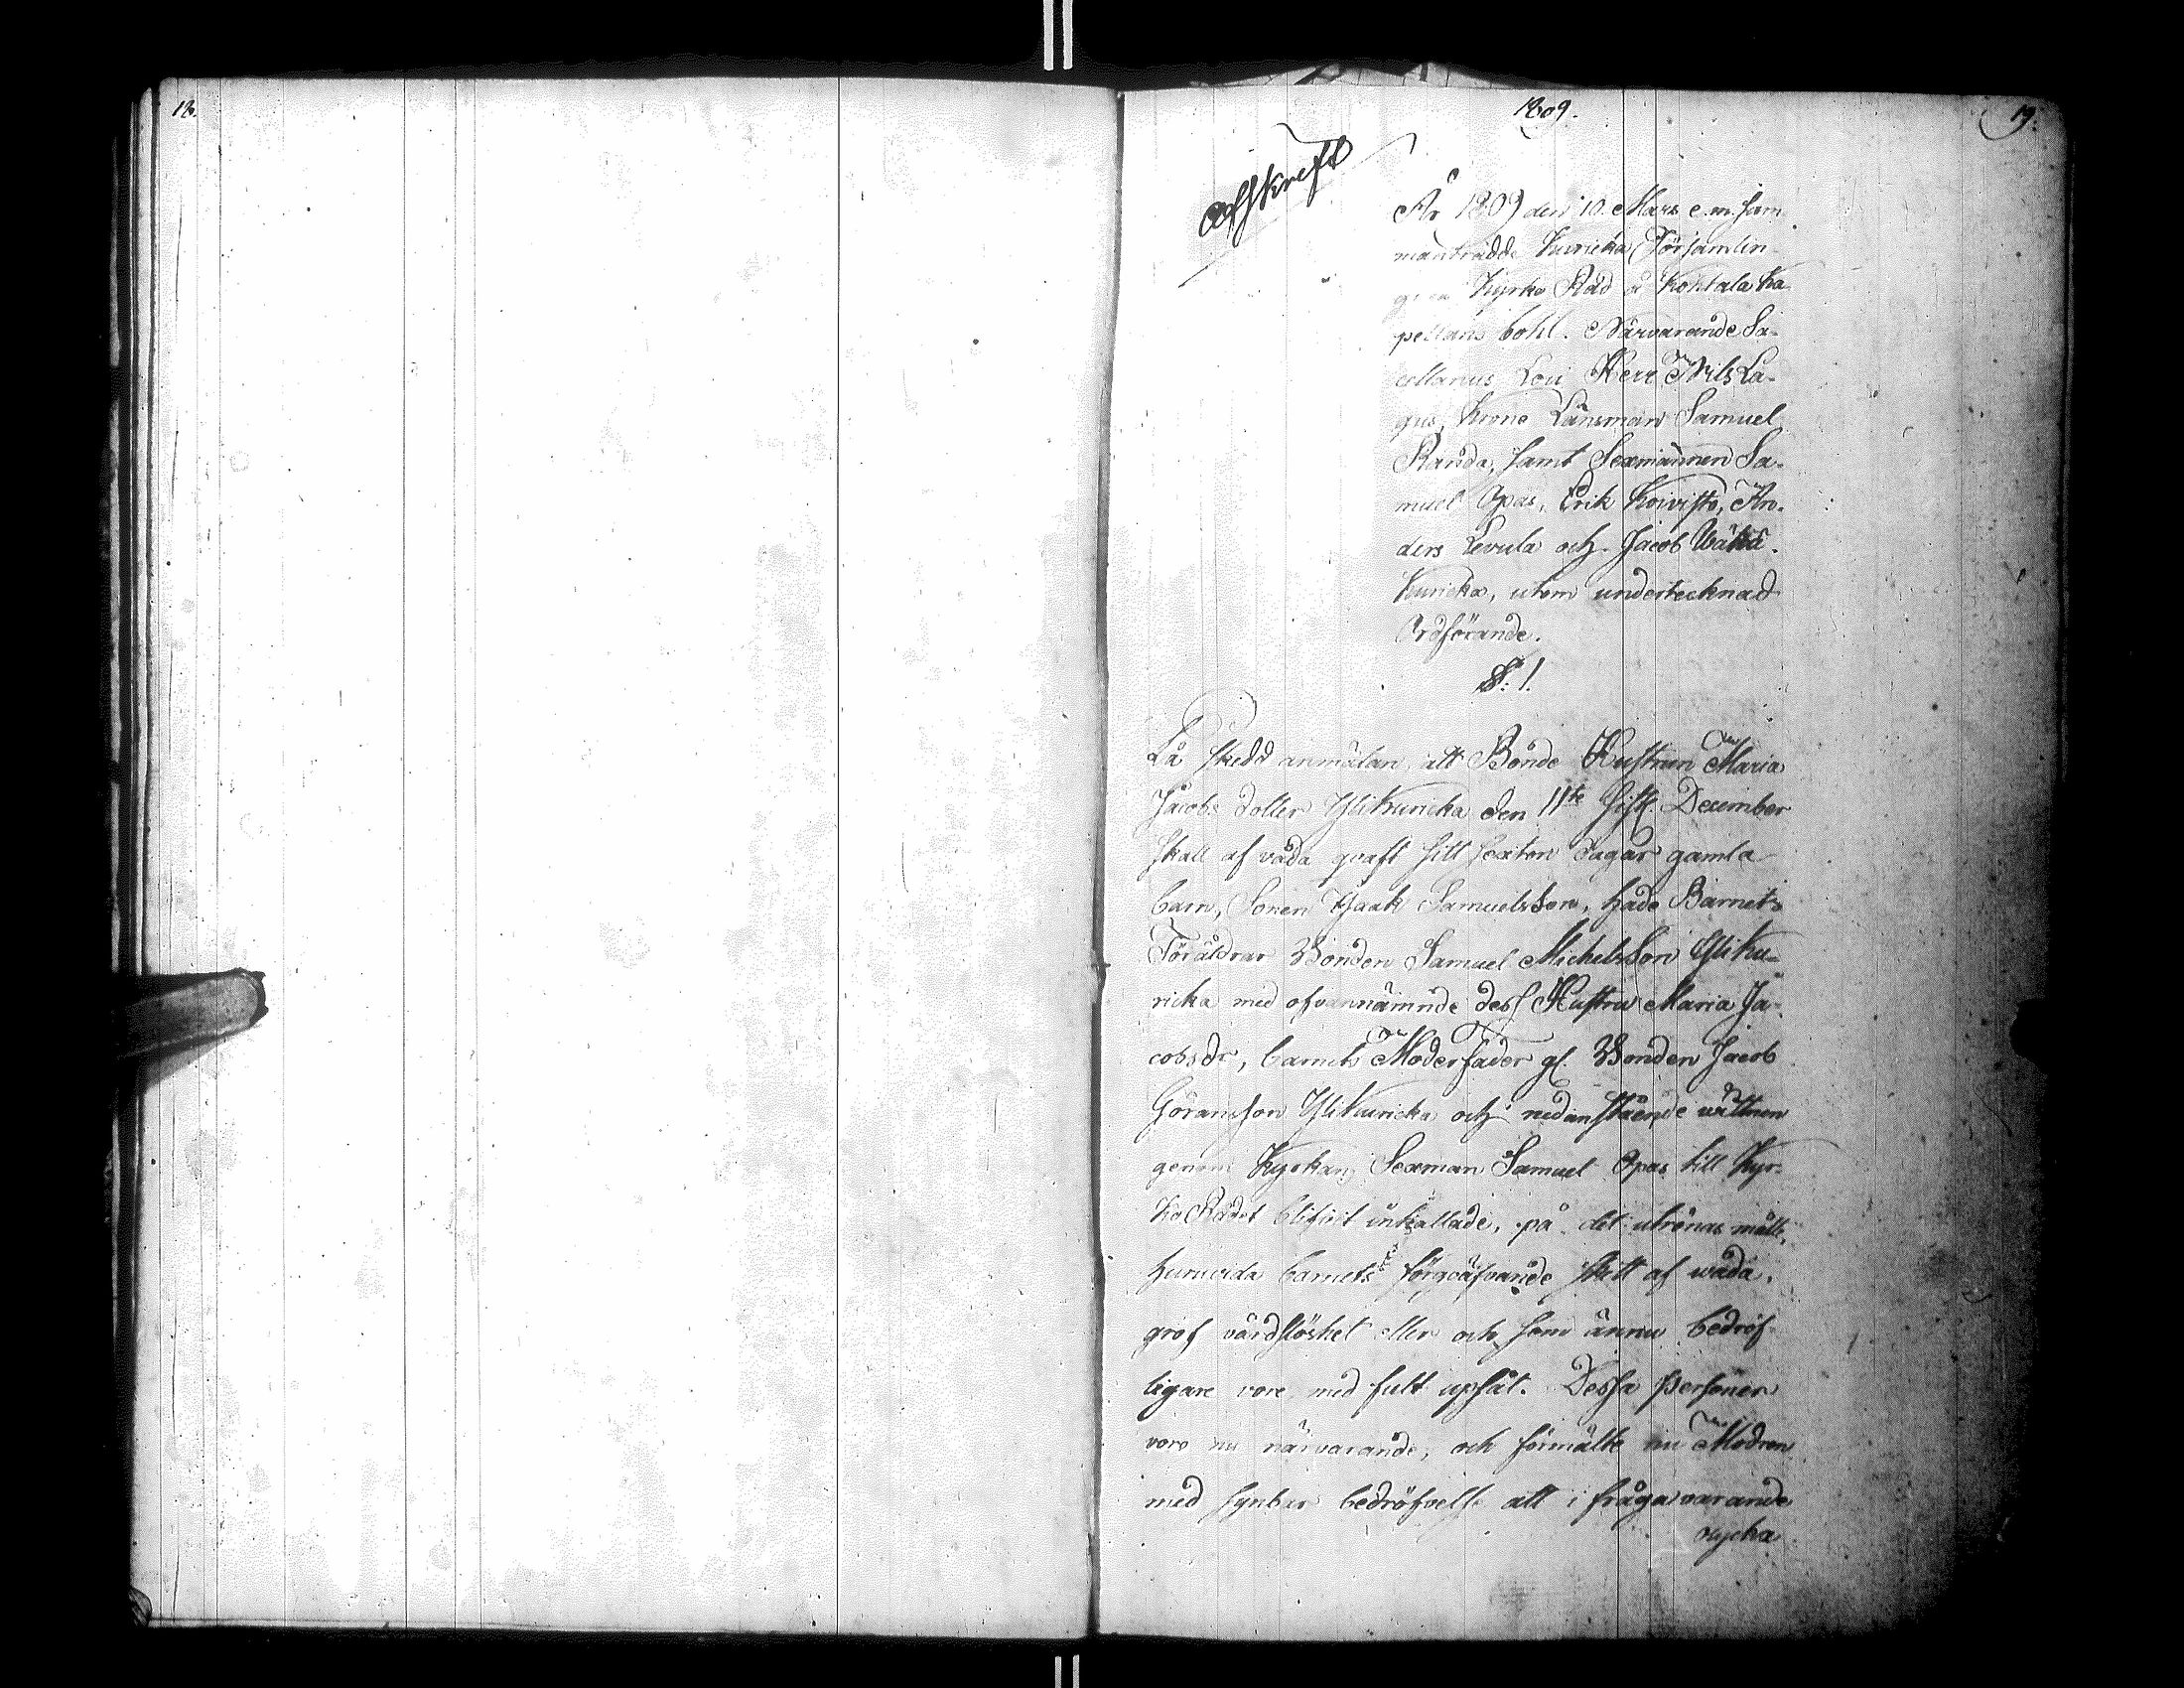 18.
1809.
19.
Afskrift
År 1809 den 10. Mars e.m. sam
manträdde Kuricka Församlin
gens Kyrko Råd å Kohtala Ka
pellans bohl. Närvarande Sa-
cellanus Loci Herr Nils La-
gus, Krono Länsman Samuel
Randa, samt Sexmännen Sa-
muel Opas, Erik Koivisto, An-
ders Levula och Jacob Wähä
Kuricka, utom undertecknad
Ordförande.
§. 1.
På skedd anmälan, att Bonde Hustrun Maria
Jacobs dotter Ylikuricka den 11te sistl. December
skall af våda qvaft sitt sexton dagar gamla
barn, Sonen Isaak Samuelsson, hade Barnets
Föräldrar Bonden Samuel Michelsson Yliku-
ricka med ofvannämnde dess Hustru Maria Ja-
cobsdr, barnets Moderfader gl. Bonden Jacob
Göransson Ylikuricka och nedanstående vittnen
genom Kyrkans Sexman Samuel Opas till Kyr-
ko Rådet blifvit inkallade, på det utrönas måtte,
huruvida barnets förqväfvande skett af wåda,
grof vårdslöshet eller och som ännu bedröf
ligare vore med fult upsåt. Dessa personer
voro nu närvarande, och förmälte nu Modren
med synbar bedröfvelse att i fråga varande
olycka